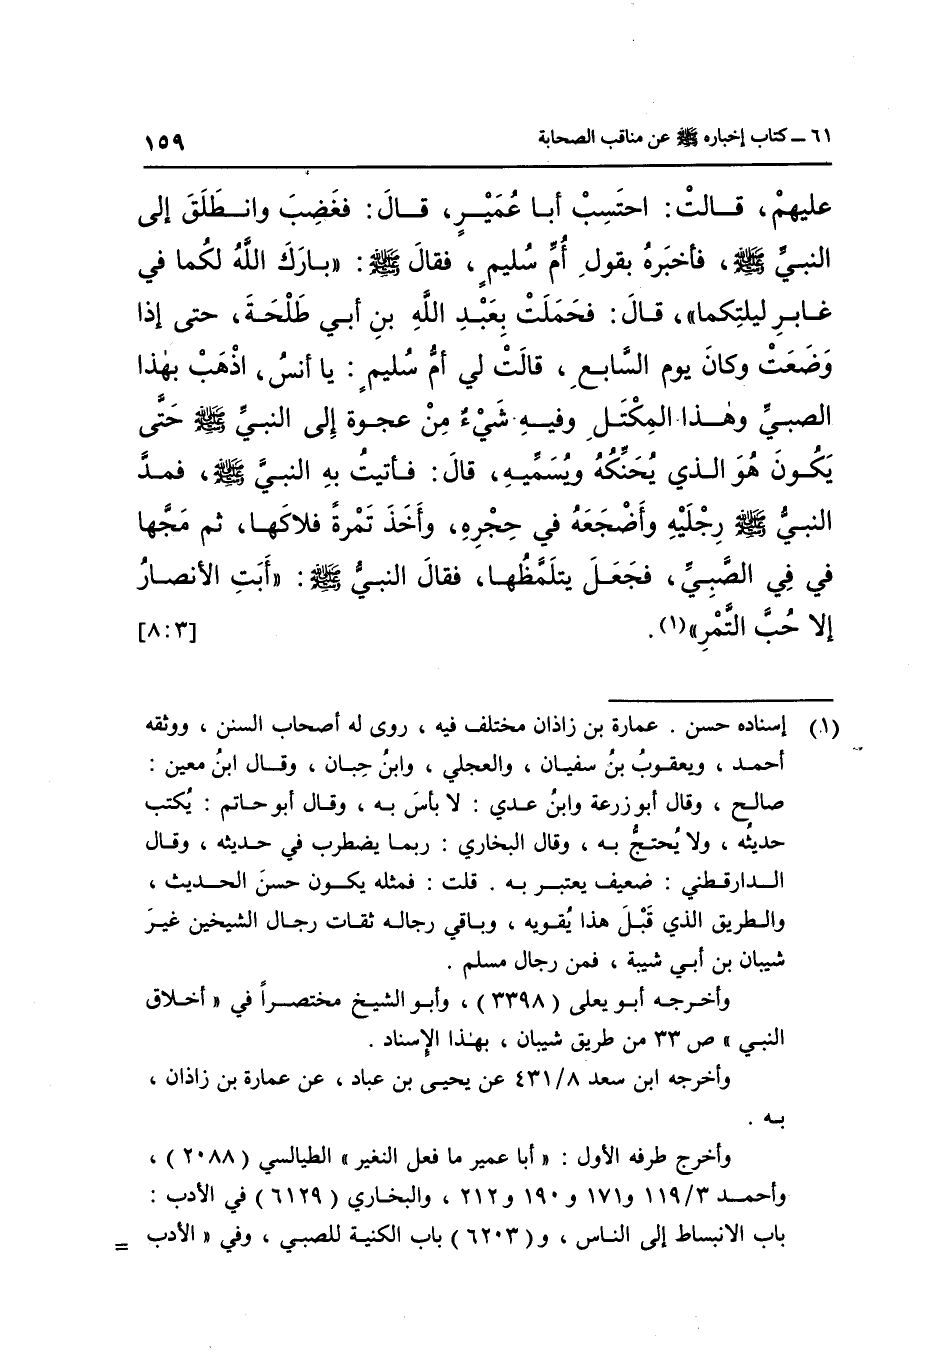 ٦١ ــ كتاب إخباره ﷺ عن مناقب الصحابة ١٥٩
عليهمْ، قــالتْ: احتَسِبْ أبـا عُمَيْـرٍ، قـالَ: فغَضِبَ وانـطَلَقَ إلى
النبيِّ ﷺ، فأخبَرهُ بقولِ أُمِّ سُليمٍ، فقالَ ﷺ: «بـارَكَ اللَّهُ لكُما في
غـابـرِ ليلتِكما»، قـالَ: فحَمَلَتْ بِعَبْـدِ اللَّهِ بنِ أبـي طَلْحَـةَ، حتى إذا
وَضَعَتْ وكانَ يوم السَّابعِ، قالَتْ لي أمُّ سُليمٍ: يا أنسُ، اذْهَبْ بهٰذا
الصبيِّ وهٰـذا المِكْتَـلِ وفيـهِ شَيْءٌ مِنْ عجـوة إلى النبـيِّ ﷺ حَتَّى
يَكُـونَ هُوَ الـذي يُحَنِّكُهُ ويُسَمِّيـهِ، قالَ: فـأتيتُ بهِ النبـيَّ ﷺ، فمـدَّ
النبـيُّ ﷺ رِجْلَيْهِ وأَضْجَعَهُ في حِجْرِهِ، وأَخَذَ تَمْرةً فلاكَهـا، ثم مَجَّها
في فِي الصَّبِيِّ، فجَعَـلَ يتلَمَّظُهـا، فقالَ النبـيُّ ﷺ: «أَبَتِ الأنصـارُ
إلا حُبَّ التَّمْرِ»(١). [٨:٣]
(١) إسناده حسن . عمارة بن زاذان مختلف فيه ، روى له أصحاب السنن ، ووثقه
أحمـد ، ويعقـوبُ بنُ سفيـان ، والعجلي ، وابنُ حِبـان ، وقـال ابنُ معين :
صالـح ، وقال أبو زرعة وابنُ عـدي : لا بأسَ بـه ، وقـال أبو حـاتم : يُكتب
حديثُه ، ولا يُحتـجُّ بـه ، وقال البخاري : ربمـا يضطرب في حـديثه ، وقـال
الـدارقـطني : ضعيـف يعتبـر بـه . قلت : فمثله يكـون حسنَ الحـديث ،
والـطريق الذي قَبْـلَ هذا يُقـويه ، وبـاقي رجالـه ثقـات رجـال الشيخين غيـرَ
شيبان بن أبـي شيبة ، فمن رجال مسلم .
وأخـرجـه أبـو يعلى ( ٣٣٩٨ ) ، وأبـو الشيـخ مختصـراً في « أخـلاق
النبـي » ص ٣٣ من طريق شيبان ، بهٰذا الإسناد .
وأخرجه ابن سعد ٤٣١/٨ عن يحيـى بن عباد ، عن عمارة بن زاذان ،
بـه .
وأخرج طرفه الأول : « أبا عمير ما فعل النغير » الطيالسي ( ٢٠٨٨ ) ،
وأحمـد ١١٩/٣ و١٧١ و ١٩٠ و٢١٢ ، والبخـاري ( ٦١٢٩ ) في الأدب :
باب الانبساط إلى النـاس ، و( ٦٢٠٣ ) باب الكنيـة للصبـي ، وفي « الأدب =